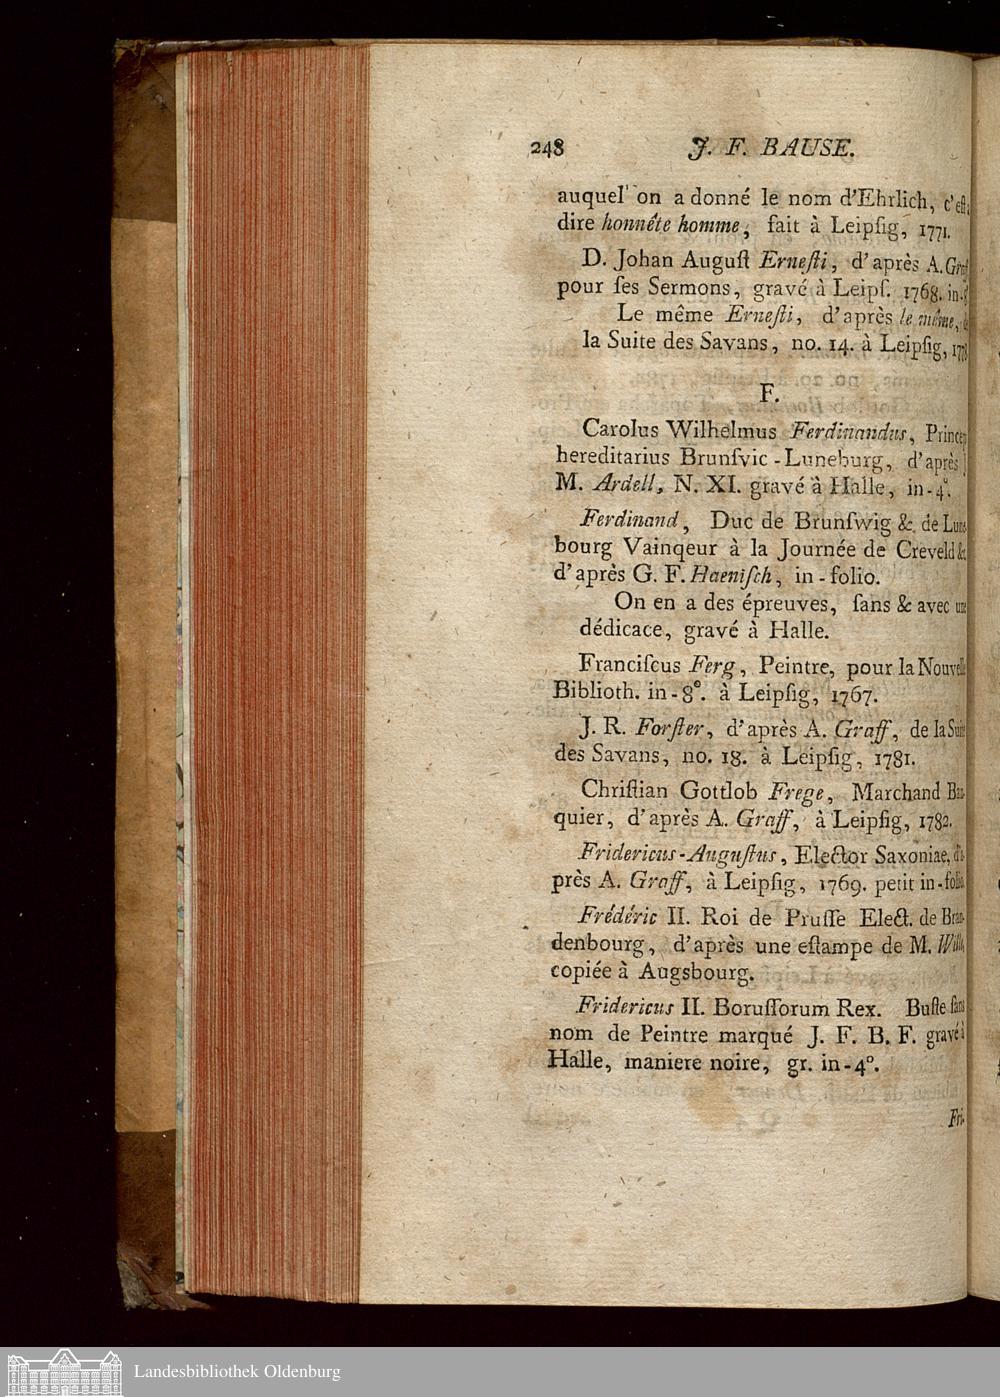 248 J. F. BAUSE.
auquel on a donné le nom d'Ehrlich, c'eſt à
dire honnête homme, fait à Leipſig, 1771.
D. Johan Auguſt Erneſti, d'après A. Graf
pour ſes Sermons, gravé à Leipſ. 1768. in-8
Le même Erneſti, d'après le même, de
la Suite des Savans, no. 14. à Leipſig, 1778
F.
Carolus Wilhelmus Ferdinandus, Princeps
hereditarius Brunſvic-Luneburg, d'après J
M. Ardell, N. XI. gravé à Halle, in-4°.
Ferdinand, Duc de Brunſwig &. de Lune-
bourg Vainqeur à la Journée de Creveld &.
d'après G. F. Haeniſch, in-folio.
On en a des épreuves, ſans & avec une
dédicace, gravé à Halle.
Franciſcus Ferg, Peintre, pour la Nouvelle
Biblioth. in-8°. à Leipſig, 1767.
J. R. Forſter, d'après A. Graff, de la Suite
des Savans, no. 18. à Leipſig, 1781.
Chriſtian Gottlob Frege, Marchand Ban-
quier, d'après A. Graff, à Leipſig, 1782.
Fridericus-Auguſtus, Elector Saxoniae, d'a-
près A. Graff, à Leipſig, 1769. petit in-folio.
Frédéric II. Roi de Pruſſe Elect. de Bran-
denbourg, d'après une eſtampe de M. Wille,
copiée à Augsbourg.
Fridericus II. Boruſſorum Rex. Buſte ſans
nom de Peintre marqué J. F. B. F. gravé à
Halle, maniere noire, gr. in-4°.
Fri-
Landesbibliothek Oldenburg